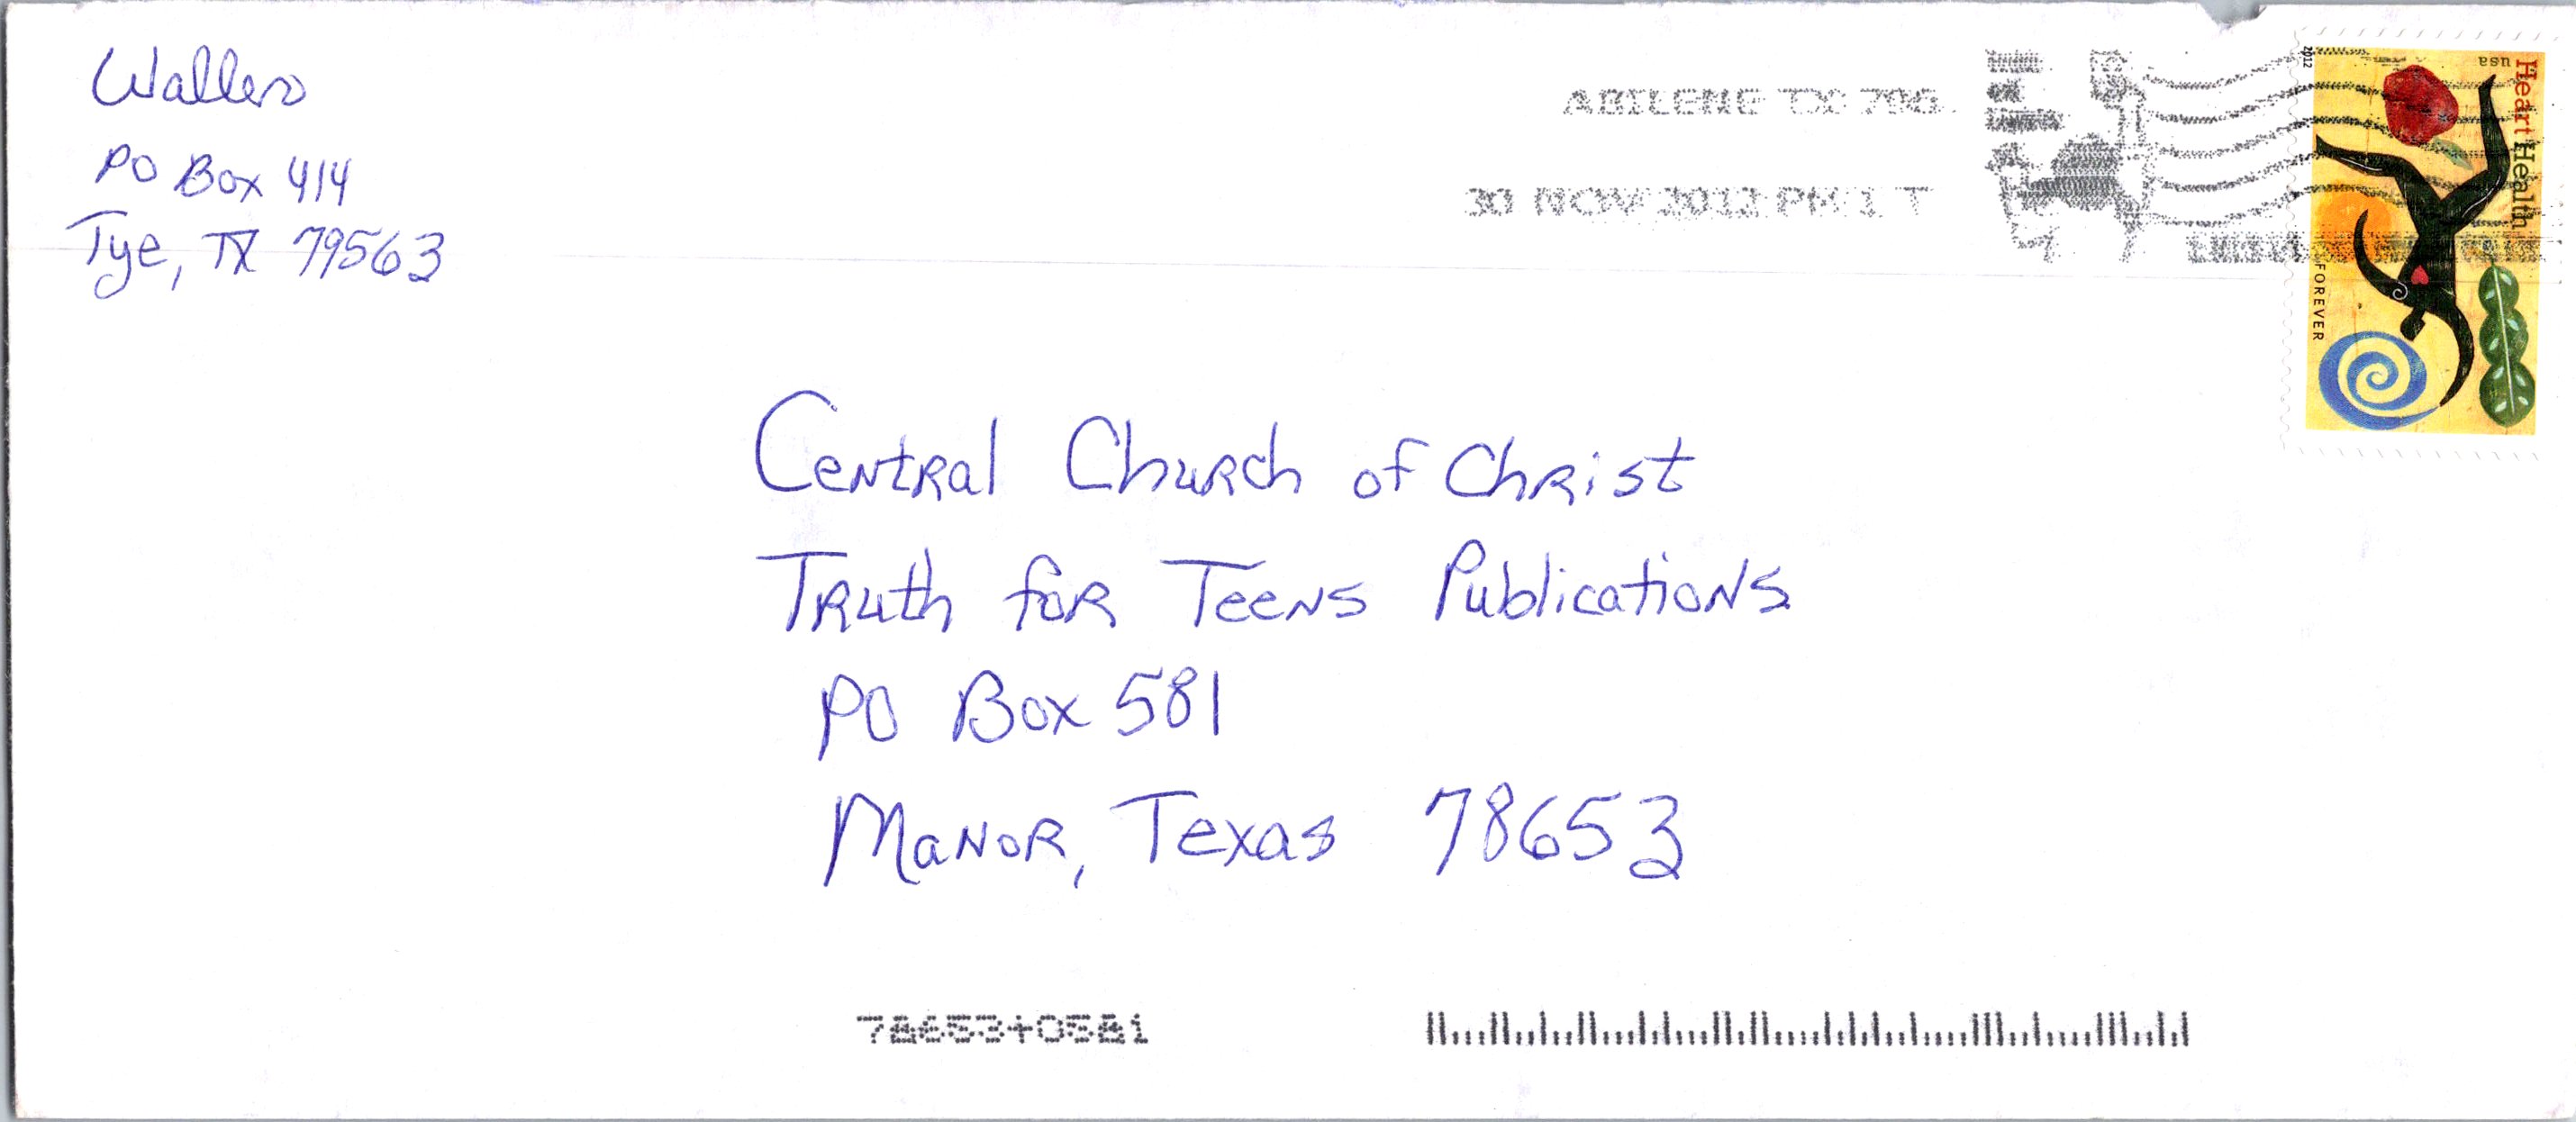 Wallers
PO Box 414
Tye, TX 79563
ABILENE TX 796
30 NOV 2012 PM 1 T
2012
usa
Heart Health
FOREVER
Central Church of Christ
Truth for Teens Publications
PO Box 581
Manor, Texas 78653
78653+0581